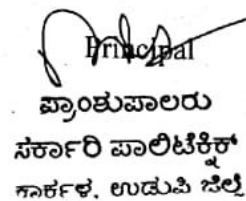 Principal
ಪ್ರಾಂಶುಪಾಲರು
ಸರ್ಕಾರಿ ಪಾಲಿಟೆಕ್ನಿಕ್
ಕಾರ್ಕಳ, ಉಡುಪಿ ಜಿಲ್ಲೆ